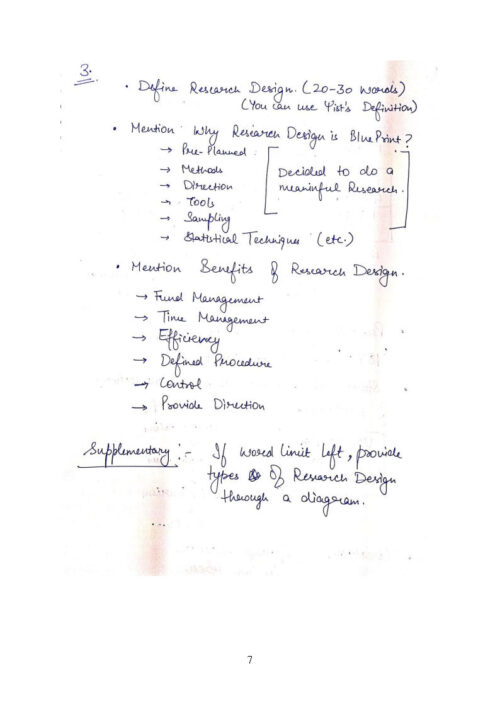 3.
• Define Research Design. (20-30 words)
(You can use Yist's Definition)
• Mention Why Research Design is Blue Print?
→ Pre-Planned
→ Methods
→ Direction
→ Tools
→ Sampling
→ Statistical Technique (etc.)
Decided to do a
meaninful Research.
• Mention Benefits of Research Design.
→ Fund Management
→ Time Management
→ Efficiency
→ Defined Procedure
→ Control
→ Provide Direction
Supplementary :- If word limit left, provide
types of Research Design
through a diagram.
7